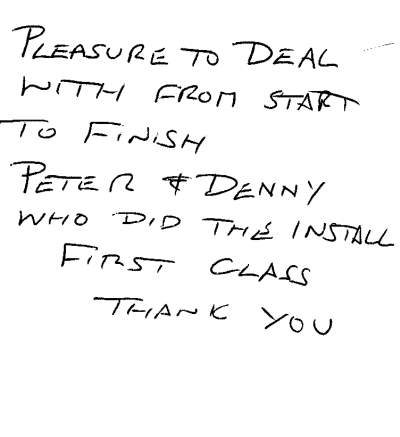 PLEASURE TO DEAL
WITH FROM START
TO FINISH
PETER & DENNY
WHO DID THE INSTALL
FIRST CLASS
THANK YOU